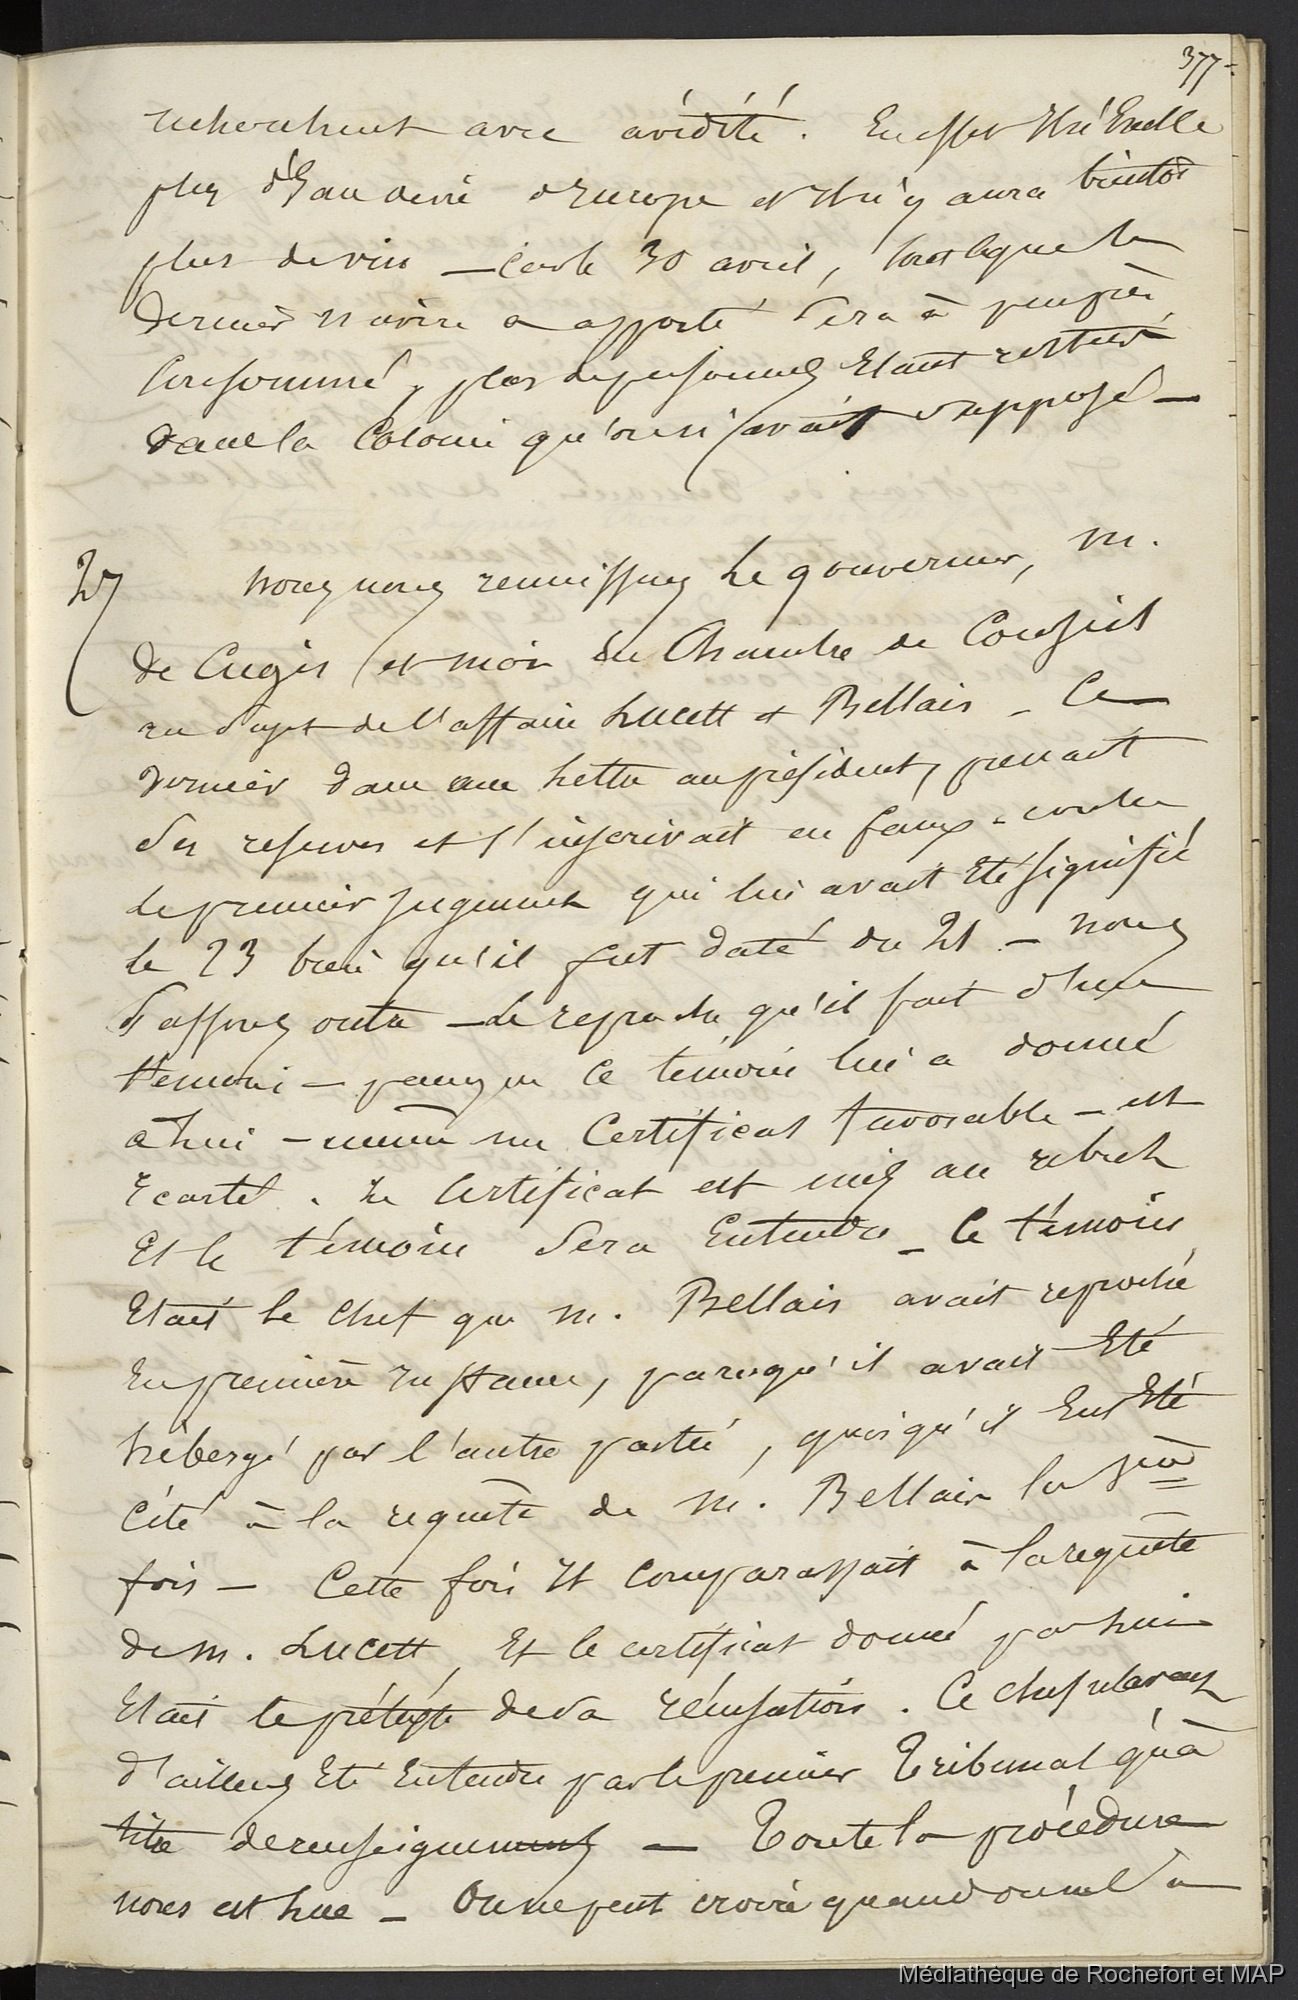 377-
recherchent avec avidité. En effet il n'é
plus d'Eau de vie d'Europe et il n'y aura bientôt
plus de vin — Car le 30 avril, tout ce que le
dernier navire a apporté Sera à peu près
Consommé, plus de personnes Etant restées
dans la Colonie qu'on n'avait supposé —
27 nous nous reunissons Le gouverneur, M.
de Cugis et moi en Chambre de Conseil
au Sujet de l'affaire Lucett & Bellais — Ce
dernier dans une lettre au président, prenait
des reserves et s'inscrivait en faux contre
le premier jugement qui lui avait Eté signifié
le 23 bien qu'il fut daté du 21 — nous
passons outre — Le reproche qu'il fait d'un
témoin — parce que ce témoin lui a donné
à lui-même un Certificat favorable — est
Ecarté. Le Certificat est mis au rebut
Et le témoin Sera Entendu — Ce témoin
Etait le Chef que M. Bellais avait reproché
En première Instance, parcequ'il avait Eté
hébergé par l'autre partie, quoiqu'il Eut Eté
Cité à la requête de M. Bellais la 1ère
fois — Cette fois Il Comparaissait à la requête
de M. Lucett, Et le certificat donné par lui
Etait le prétexte de sa récusation. Ce chef n'avait
d'ailleurs Eté Entendu par le premier Tribunal qu'à
titre de renseignements — Toute la procédure
nous est lue — On ne peut croire quand on ne l'a
Médiathèque de Rochefort et MAP